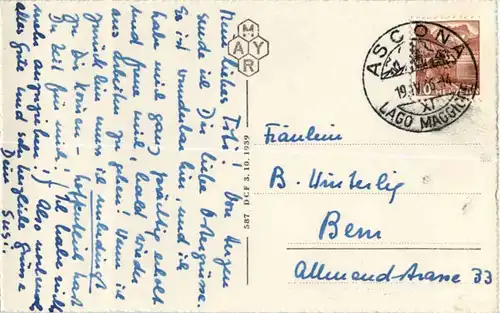 Mein liebes Titi! Von Herzen
sende ich Dir liebe Ostergrüsse.
Es ist wunderbar hier, und ich
habe mich ganz prächtig erholt
und freue mich, bald wieder
ans Arbeiten zu gehen! Wenn ich
zurück bin muss ich unbedingt
zu Dir kommen - hoffentlich hast
Du Zeit für mich! Ich habe nicht
mehr angegeben! Also nochmals
alles gute und sehr herzliche Grüsse
Dein Susi.
MAYR
587 DCF 3.10.1939
ASCONA
19.IV
XI
LAGO MAGGIORE
Fräulein
B. Winterlig
Bern
Allmendstrasse 33